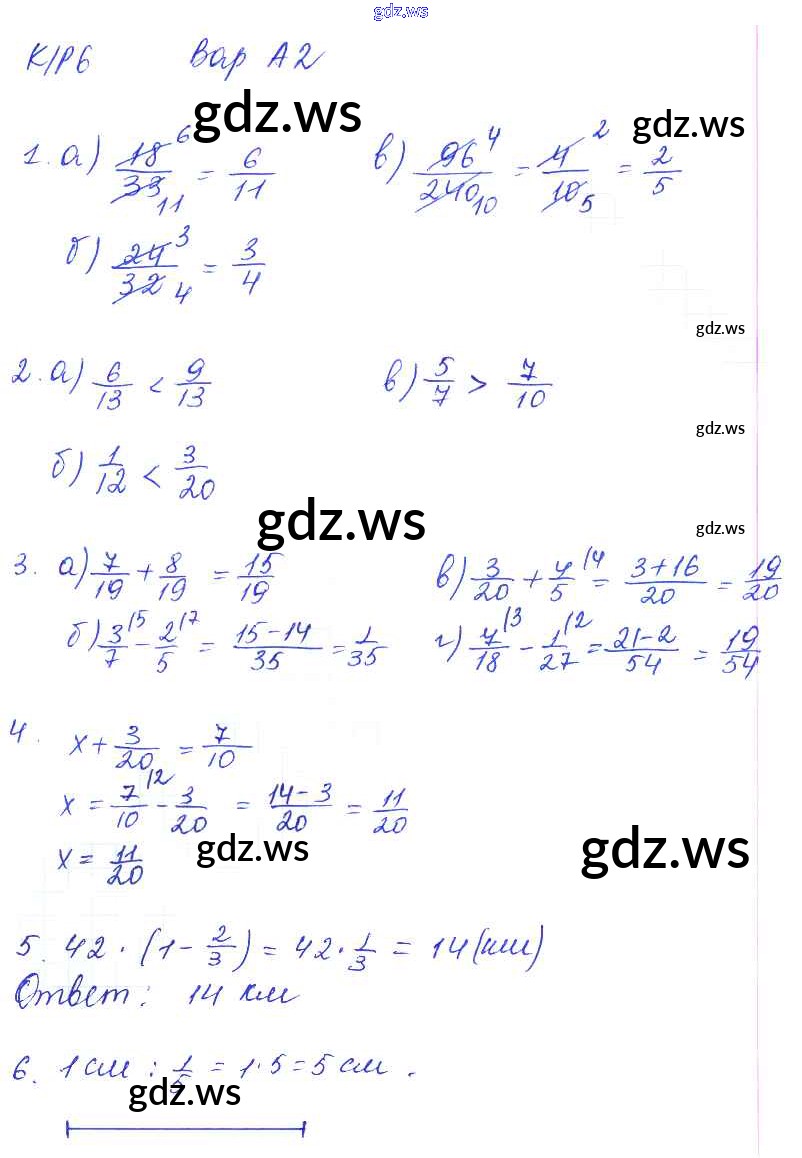 gdz.ws
К/Р6 Вар А2
gdz.ws gdz.ws
1. а) 18/33 6 11 = 6/11 в) 96/240 4 10 = 4/10 2 5 = 2/5
б) 24/32 3 4 = 3/4
gdz.ws
2. а) 6/13 < 9/13 в) 5/7 > 7/10
gdz.ws
б) 1/12 < 3/20
gdz.ws gdz.ws
3. а) 7/19 + 8/19 = 15/19 в) 3/20 + 4/5 |4 = (3+16)/20 = 19/20
б) 3/7 |5 - 2/5 |7 = (15-14)/35 = 1/35 г) 7/18 |3 - 1/27 |2 = (21-2)/54 = 19/54
4. x + 3/20 = 7/10
x = 7/10 |2 - 3/20 = (14-3)/20 = 11/20
x = 11/20
gdz.ws gdz.ws
5. 42 · (1 - 2/3) = 42 · 1/3 = 14 (км)
Ответ: 14 км
6. 1 см : 1/5 = 1·5 = 5 см.
gdz.ws gdz.ws